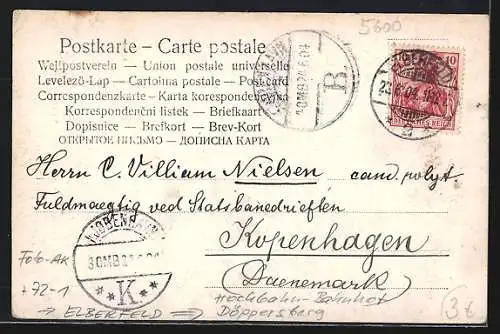 5600
Postkarte – Carte postale
Weltpostverein – Union postale universelle
Levelező-Lap – Cartolina postale – Post card
Correspondenzkarte – Karta korespondencyjna
Korrespondenční listek – Briefkaart
Dopisnice – Brefkort – Brev-Kort
ОТКРЫТОЕ ПИСЬМО – ДОПИСНА КАРТА
B.
10
DEUTSCHES REICH
ELBERFELD
Herrn C. William Nielsen cand. polyt.
Fuldmaegtig ved Statsbanedrieften
Kopenhagen
(Daenemark)
KJØBENHAVN
K
Foto-AK
+72-1
→ ELBERFELD ⇒ Hochbahn-Bahnhof
Döppersberg
3€